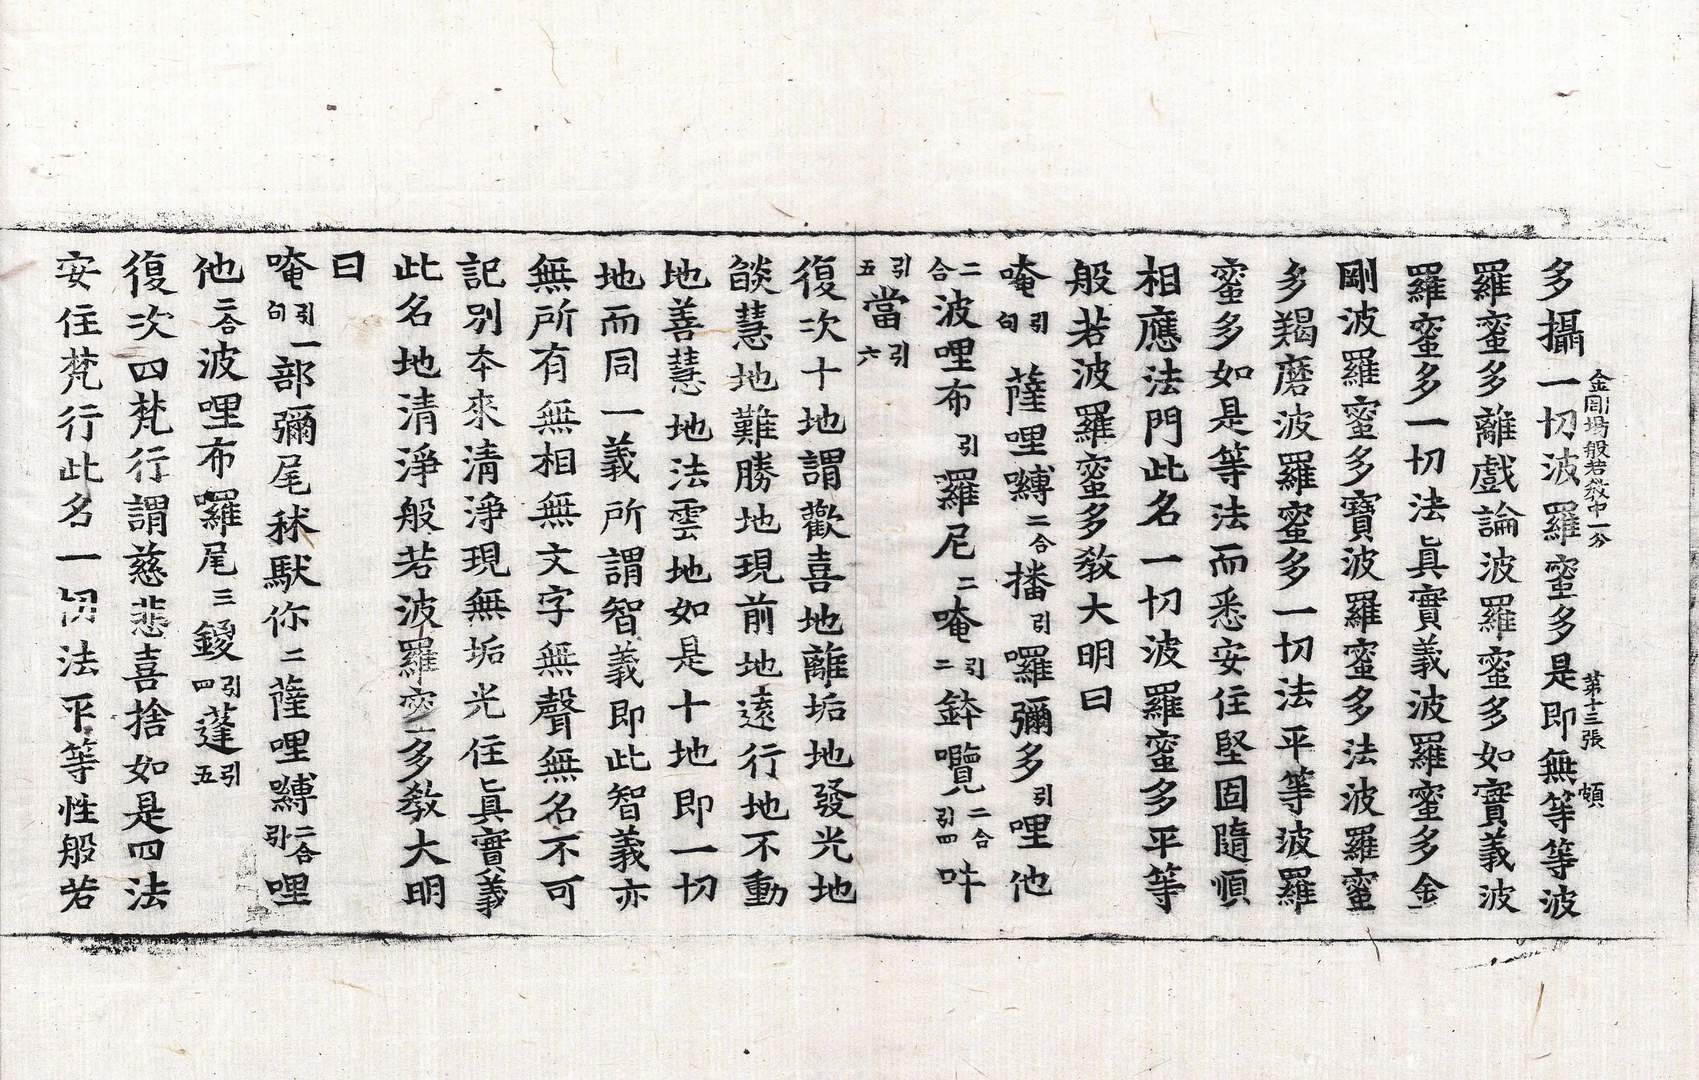 金剛場般若教中一分　第十三張　頓
多攝一切波羅蜜多是即無等等波
羅蜜多離戲論波羅蜜多如實義波
羅蜜多一切法眞實義波羅蜜多金
剛波羅蜜多寶波羅蜜多法波羅蜜
多羯磨波羅蜜多一切法平等波羅
蜜多如是等法而悉安住堅固隨順
相應法門此名一切波羅蜜多平等
般若波羅蜜多教大明曰
唵引一句薩哩嚩二合播引囉彌多引哩他
二合波哩布引囉尼二唵引三鉢囕二合引四吽
引五當引六
復次十地謂歡喜地離垢地發光地
燄慧地難勝地現前地遠行地不動
地善慧地法雲地如是十地即一切
地而同一義所謂智義即此智義亦
無所有無相無文字無聲無名不可
記別本來清淨現無垢光住眞實義
此名地清淨般若波羅蜜多教大明
曰
唵引一句部彌尾秫馱你二薩哩嚩二合引哩
他二合波哩布囉尾三鑁引四蓬引五
復次四梵行謂慈悲喜捨如是四法
安住梵行此名一切法平等性般若